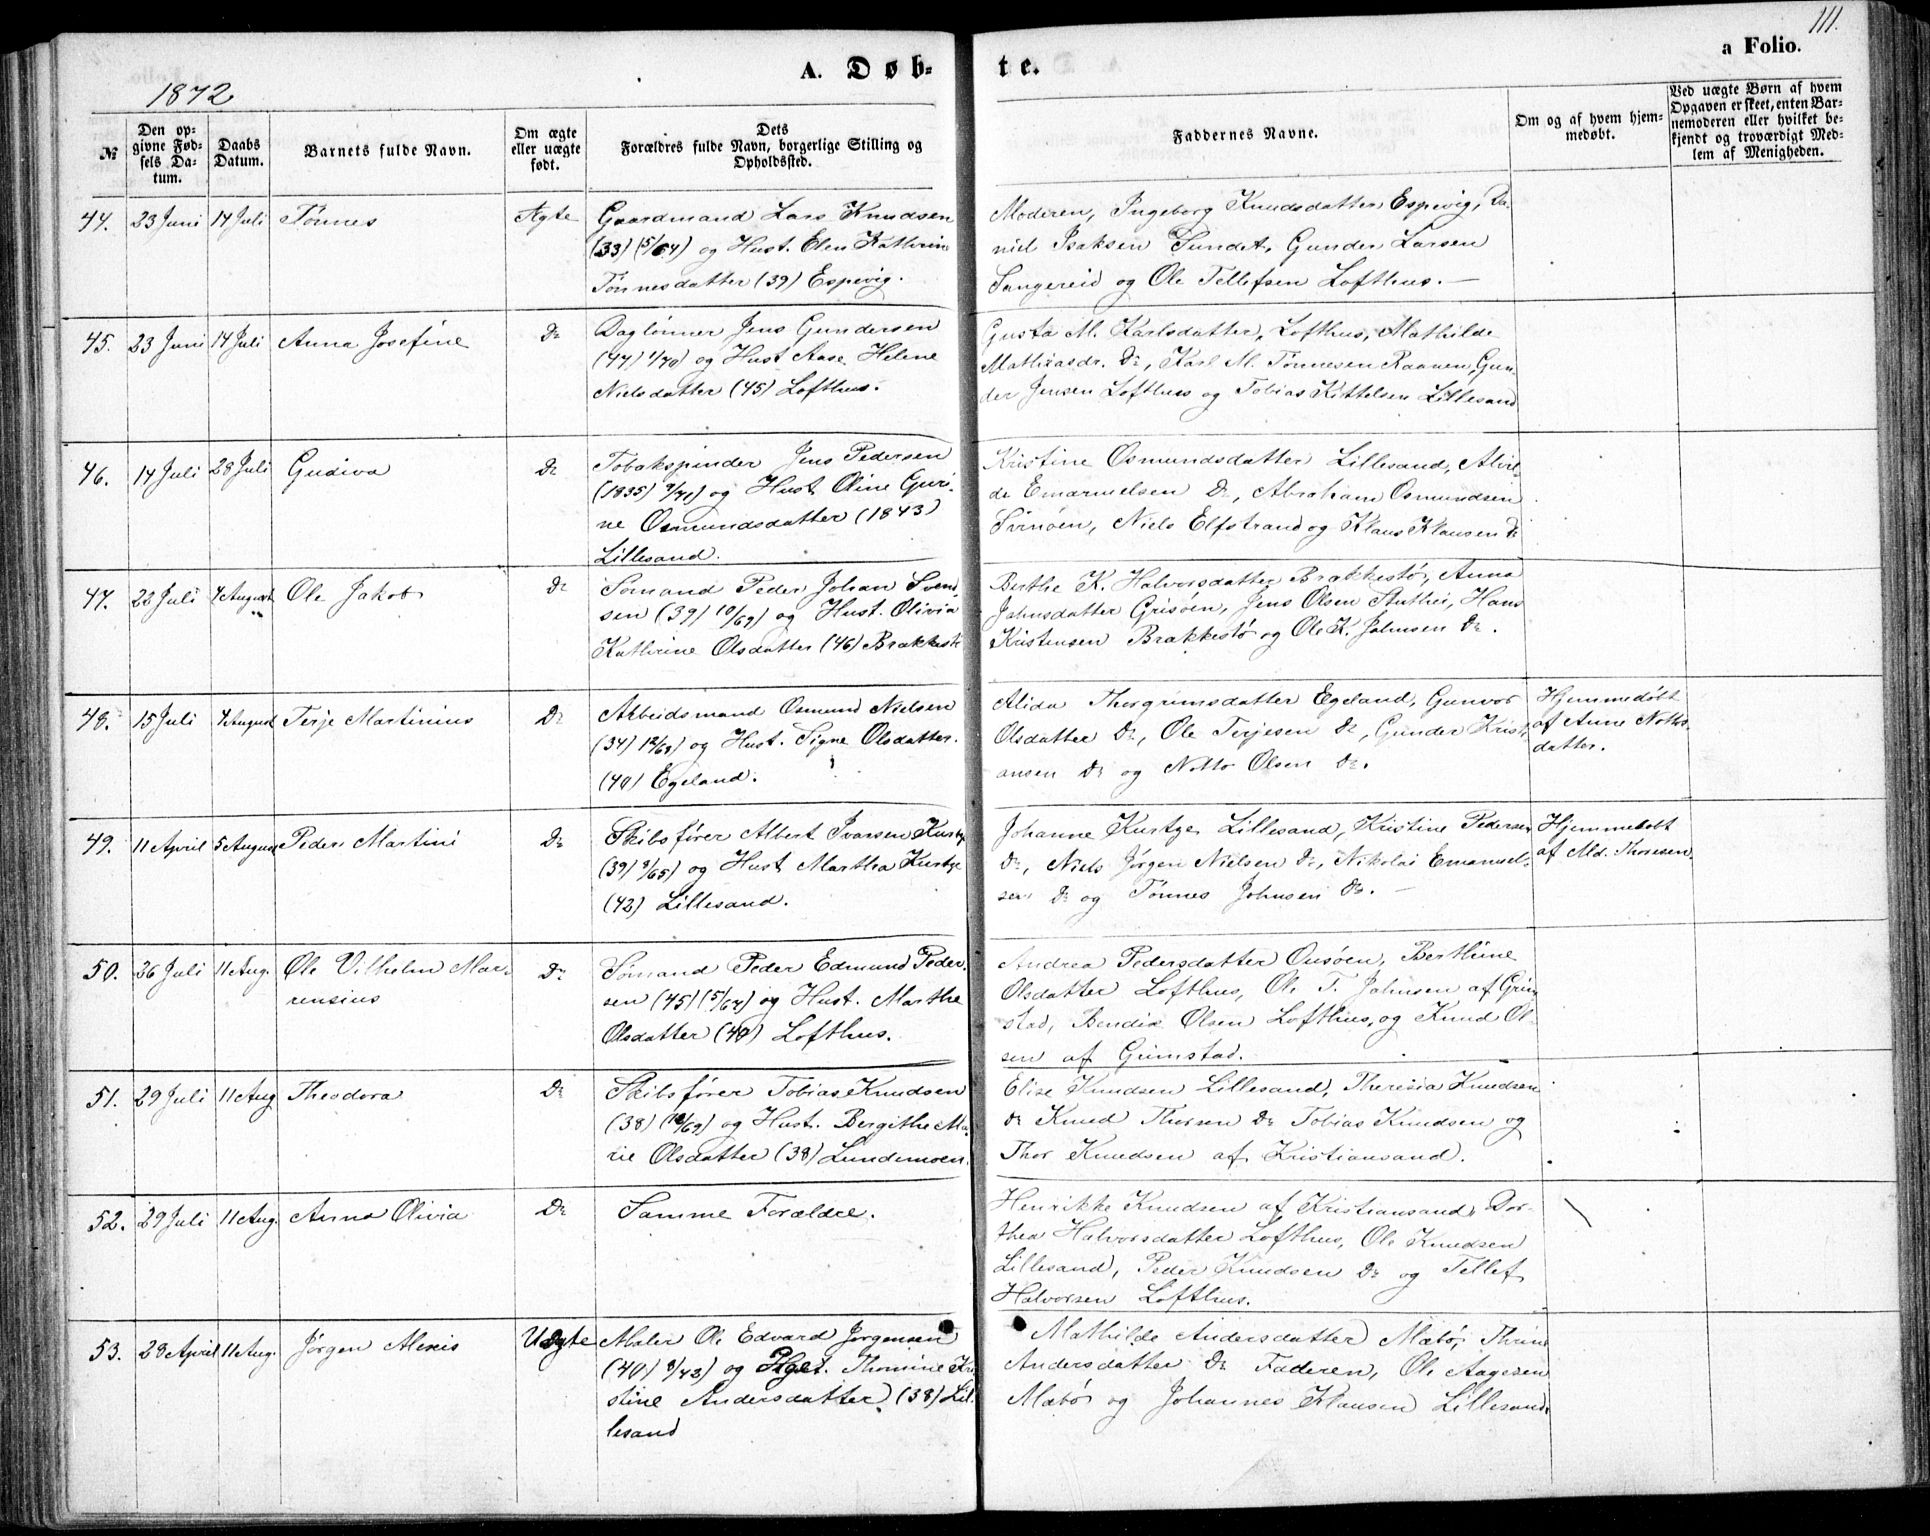 111.
a Folio.
A. Døb-
te.
1872
№
Den op-
givne Fød-
sels Da-
tum.
Daabs
Datum.
Barnets fulde Navn.
Om ægte
eller uægte
født.
Dets
Forældres fulde Navn, borgerlige Stilling og
Opholdssted.
Faddernes Navne.
Om og af hvem hjem-
medøbt.
Ved uægte Børn af hvem
Opgaven er skeet, enten Bar-
nemoderen eller hvilket be-
kjendt og troværdigt Med-
lem af Menigheden.
44. 23 Juni 14 Juli Tønnes Ægte
Gaardmand Lars Knudsen
(33) (5/64) og Hust. Elen Kathrine
Tønnesdatter (39) Espevig.
Moderen, Ingeborg Knudsdatter Espevig, Da-
niel Isaksen Sundet, Gunder Larsen
Sangereid og Ole Tellefsen Lofthus. —
45. 23 Juni 14 Juli Anna Josefine Do
Daglønner Jens Gundersen
(44) 1/70) og Hust Aase Helene
Nielsdatter (45) Lofthus.
Gusta M. Karlsdatter, Lofthus, Mathilde
Mathiasdr. Do, Karl M. Tønnesen Raanen, Gun-
der Jensen Lofthus og Tobias Kittelsen Lillesand
46. 14 Juli 28 Juli Gudiva Do
Tobakspinder Jens Pedersen
(1835) 9/70) og Hust Oline Guri-
ne Osmundsdatter (1843)
Lillesand.
Kristine Osmundsdatter Lillesand, Alvil-
de Emanuelsen Do, Abraham Osmundsen
Svinøen, Niels Elfstrand og Klaus Klausen Do
47. 22 Juli 4 August Ole Jakob Do
Sømand Peder Johan Svend-
sen (39) 10/69) og Hust. Olivia
Kathrine Olsdatter (46) Brækkestø
Berthe K. Halvorsdatter Brækkestø, Anna
Johnsdatter Grisøen, Jens Olsen Authei, Hans
Kristensen Brækkestø og Ole K. Johnsen Do.
48. 15 Juli 4 August Terje Martinius Do
Arbeidsmand Osmund Nielsen
(34) 12/69) og Hust. Signe Olsdatter
(40) Egeland.
Alida Thorgrimsdatter Egeland, Gunvor
Olsdatter Do, Ole Terjesen Do, Gunder Kristi-
ansen Do og Notto Olsen Do.
Hjemmedøbt
af Anne Notto-
datter.
49. 11 April 5 August Peder Martini Do
Skibsfører Albert Ivarsen Kurtze
(39) 8/65) og Hust Martha Kurtze
(42) Lillesand.
Johanne Kurtze Lillesand, Kristine Pedersen
Do, Niels Jørgen Nielsen Do, Nikolai Emanuel-
sen Do og Tønnes Johnsen Do. —
Hjemmedøbt
af Md. Thoresen
50. 26 Juli 11 Aug. Ole Vilhelm Mar- Do
rensius
Sømand Peder Edmund Peder-
sen (45) (5/64) og Hust. Marthe
Olsdatter (40) Lofthus.
Andrea Pedersdatter Ousøen, Berthine
Olsdatter Lofthus, Ole T. Johnsen af Grim-
stad, Bendix Olsen Lofthus, og Knud Ol-
sen af Grimstad.
51. 29 Juli 11 Aug Theodora Do
Skibsfører Tobias Knudsen
(38) (12/69) og Hust. Bergithe Ma-
rie Olsdatter (38) Lundemoen.
Elise Knudsen Lillesand, Theresia Knudsen
Do Knud Thorsen Do Tobias Knudsen og
Thor Knudsen af Kristiansand.
52. 29 Juli 11 Aug. Anna Olivia Do
Samme Forældre.
Henrikke Knudsen af Kristiansand, Dor-
thea Halvorsdatter Lofthus, Ole Knudsen
Lillesand, Peder Knudsen Do og Tellef
Halvorsen Lofthus.
53. 28 April 11 Aug. Jørgen Alexis Uægte
Maler Ole Edvard Jørgensen
(40) 8/43) og Thomine Kri
stine Andersdatter (38) Lil-
lesand
Mathilde Andersdatter Mæbø, Thrine
Andersdatter Do Faderen, Ole Aagesen
Mæbø og Johannes Klausen Lillesand.